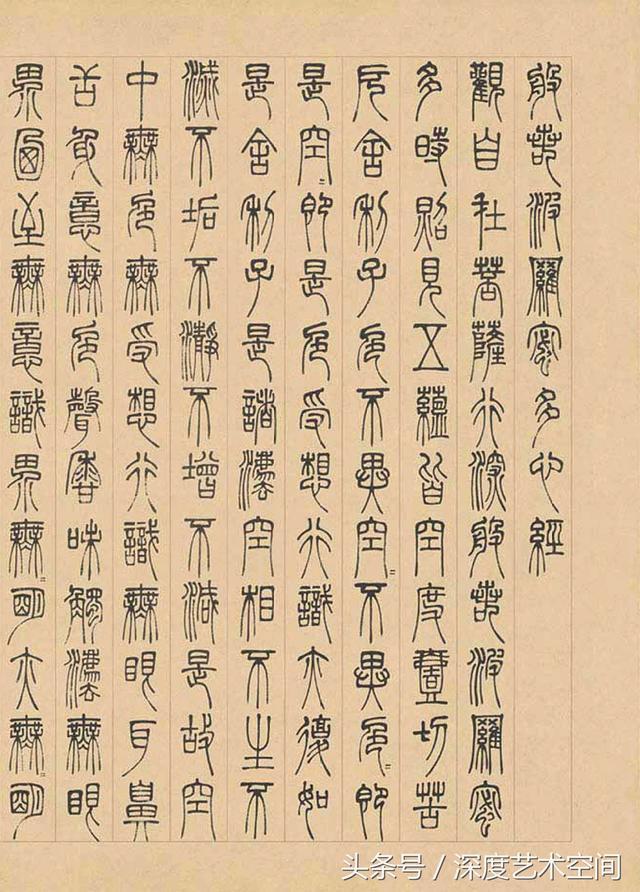 般若波羅蜜多心經
觀自在菩薩行深般若波羅蜜
多時照見五蘊皆空度壹切苦
厄舍利子色不異空〻不異色〻即
是空〻即是色受想行識亦復如
是舍利子是諸法空相不生不
滅不垢不瀞不增不減是故空
中無色無受想行識無眼耳鼻
舌身意無色聲香味觸法無眼
界乃至無意識界無〻明亦無〻明
头条号 / 深度艺术空间